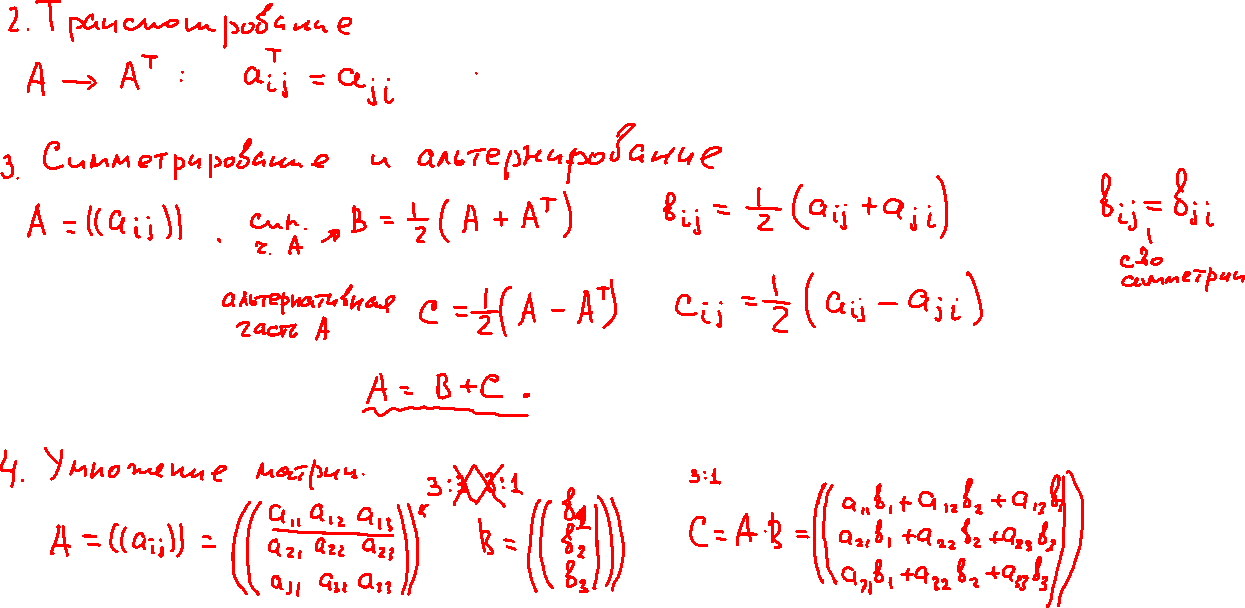 2. Транспонирование
A → Aᵀ : aᵀᵢⱼ = aⱼᵢ
3. Симметрирование и альтернирование
A = ((aᵢⱼ)) . сим. ч. A → B = 1/2 (A + Aᵀ) bᵢⱼ = 1/2 (aᵢⱼ + aⱼᵢ) bᵢⱼ = bⱼᵢ
св-во симметрии
альтернативная часть A C = 1/2 (A − Aᵀ) cᵢⱼ = 1/2 (aᵢⱼ − aⱼᵢ)
A = B + C .
4. Умножение матриц.
3:3 3:1 3:1
A = ((aᵢⱼ)) = ((a₁₁ a₁₂ a₁₃ B = ((b₁ C = A·B = ((a₁₁b₁ + a₁₂b₂ + a₁₃b₃
a₂₁ a₂₂ a₂₃ b₂ a₂₁b₁ + a₂₂b₂ + a₂₃b₃
a₃₁ a₃₂ a₃₃)) b₃)) a₃₁b₁ + a₃₂b₂ + a₃₃b₃))